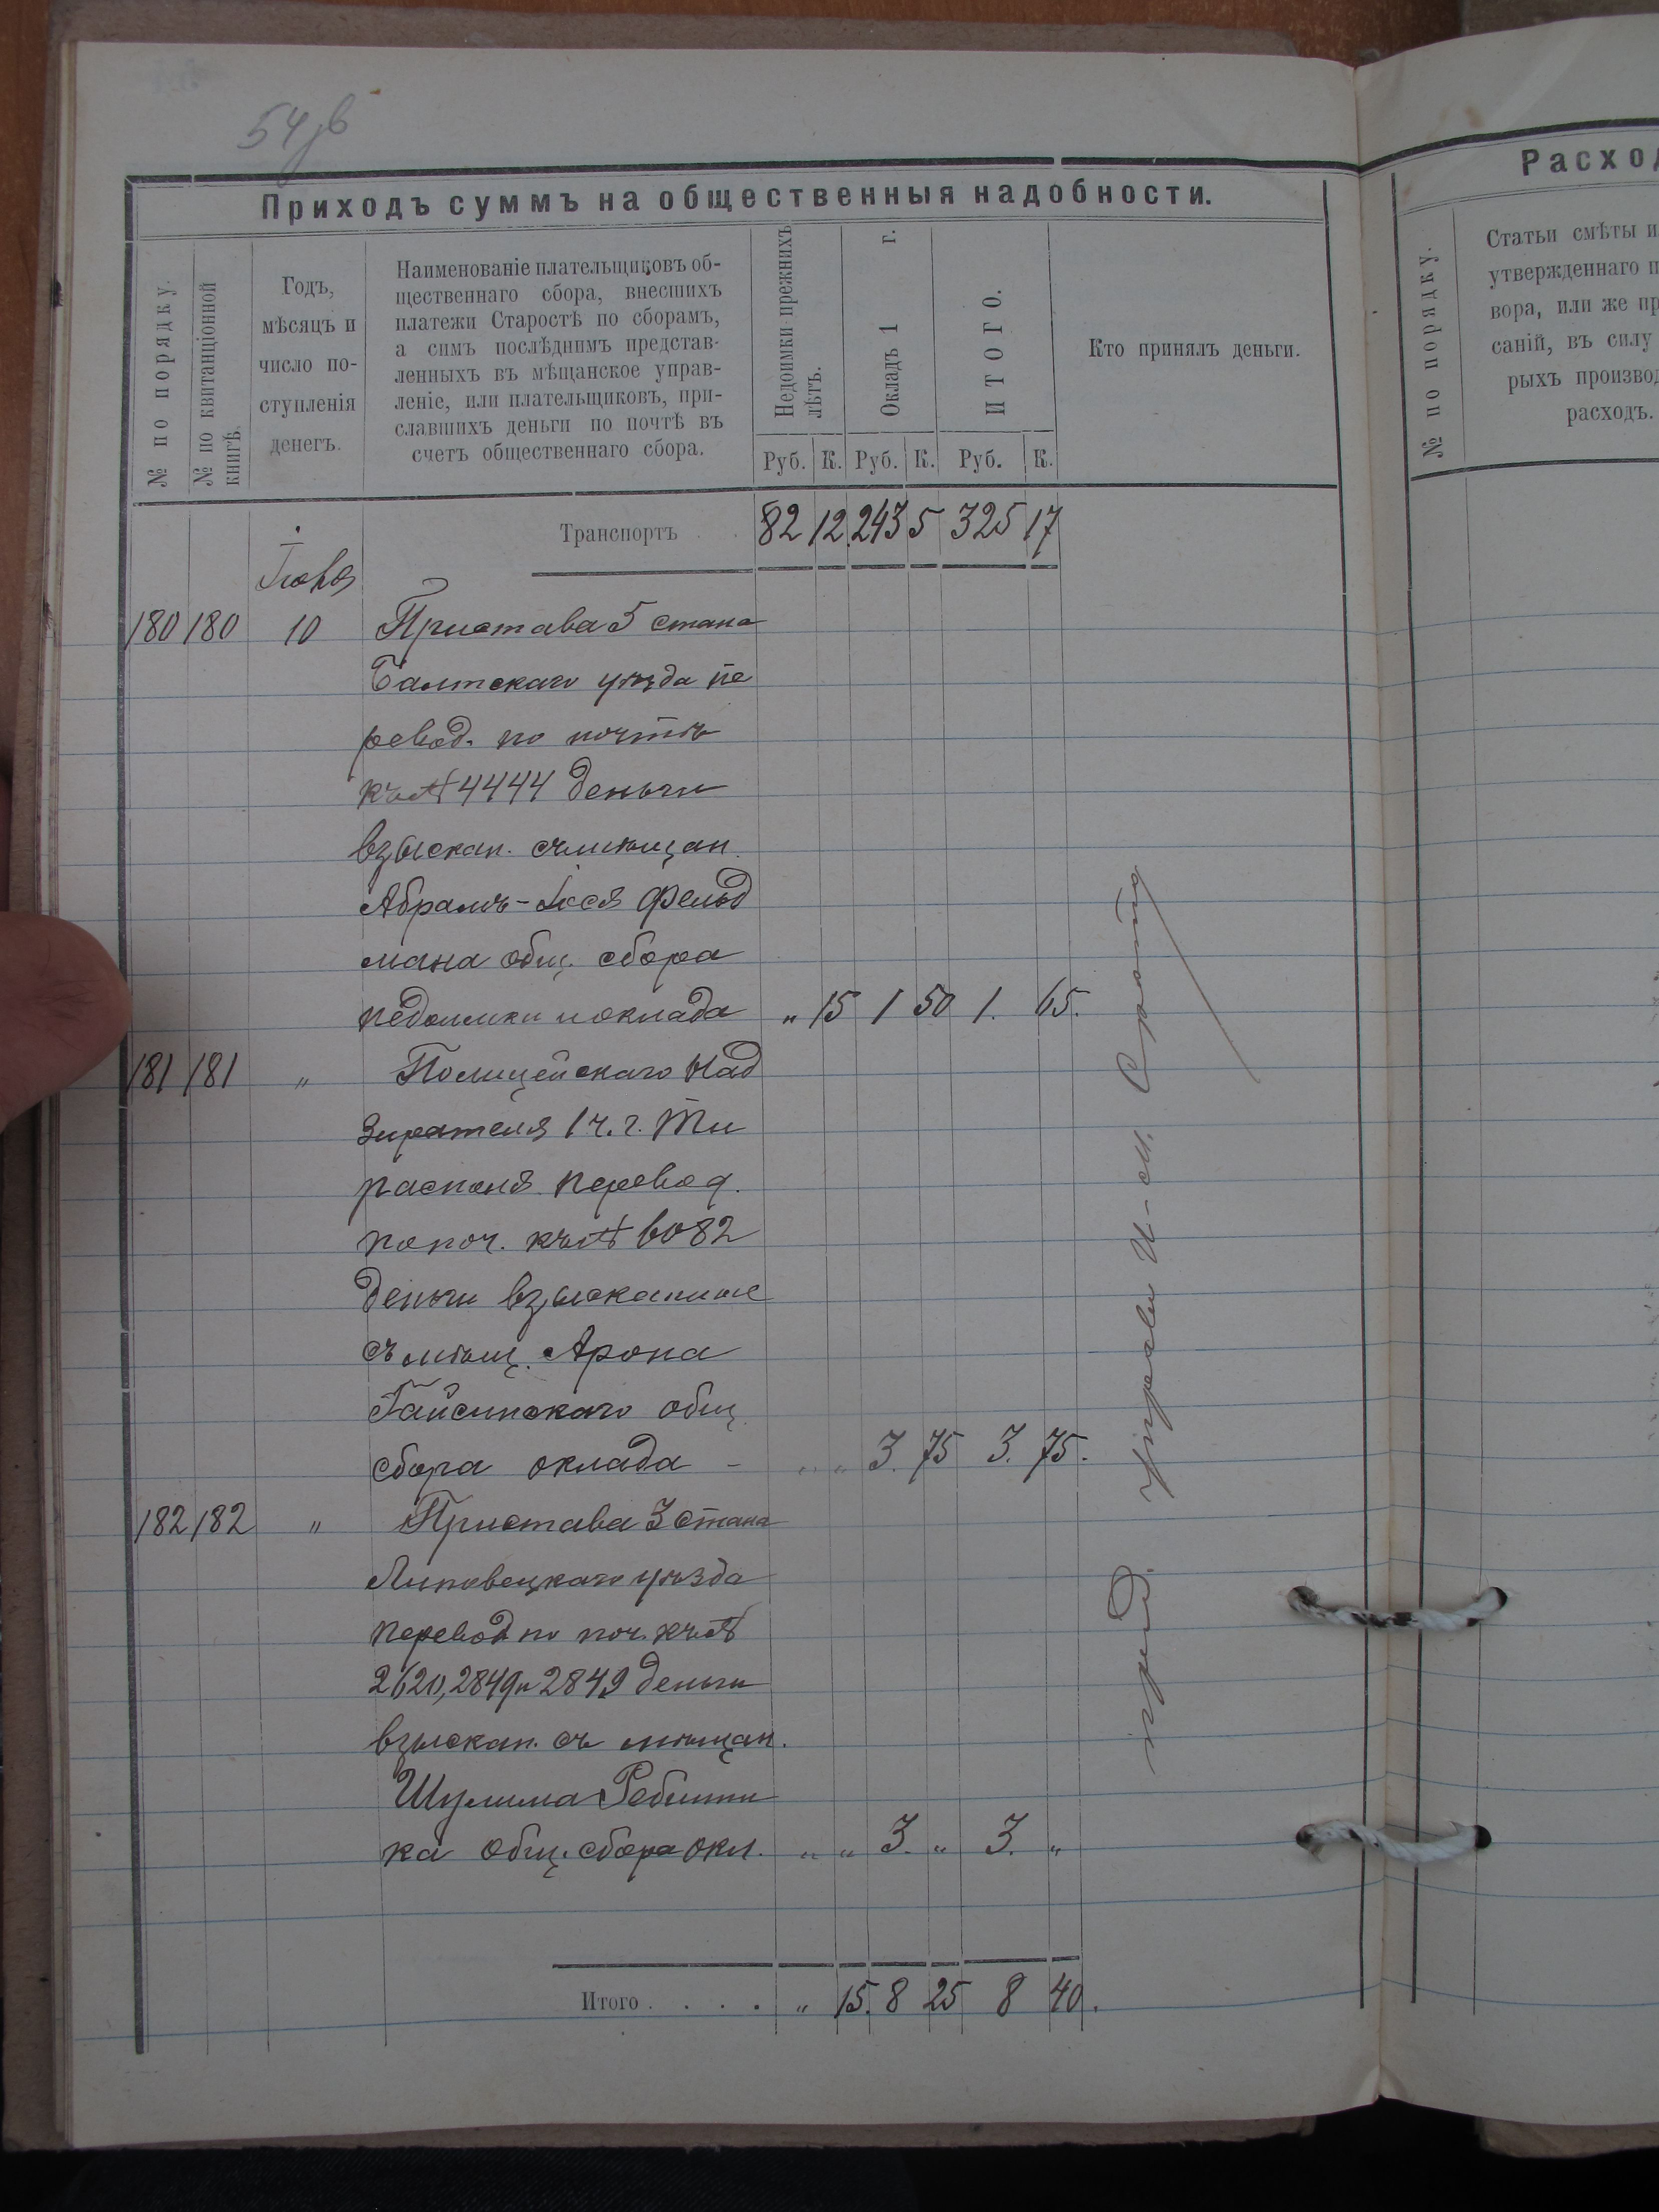 54 зв
Приходъ суммъ на общественныя надобности.
№ по порядку.
№ по квитанціонной книгѣ.
Годъ,
мѣсяцъ и
число по-
ступленія
денегъ.
Наименованіе плательщиковъ об-
щественнаго сбора, внесшихъ
платежи Старостѣ по сборамъ,
а симъ послѣднимъ представ-
ленныхъ въ мѣщанское управ-
леніе, или плательщиковъ, при-
славшихъ деньги по почтѣ въ
счетъ общественнаго сбора.
Недоимки прежнихъ
лѣтъ.
Окладъ 1 г.
ИТОГО.
Руб. К. Руб. К. Руб. К.
Кто принялъ деньги.
Транспортъ 82 12 243 5 325 17
180 180 10 Пристава 5 стана
Балтскаго уѣзда пе
ревод. по почтѣ
къ № 4444 деньги
взыскан. съ мѣщан.
Абрамъ-Іося Фельд
мана общ. сбора
недоимки и оклада „ 15 1 50 1. 65.
181 181 „ Полицейскаго Над
зирателя 1 ч. г. Ти
располя перевод.
по поч. къ № 6082
деньги взысканные
съ мѣщ. Арона
Гайсинскаго общ.
сбора оклада - „ „ 3. 75 3. 75.
182 182 „ Пристава 3 стана
Липовецкаго уѣзда
перевод по поч. къ №
2620, 2849 и 2849 деньги
взыскан. съ мѣщан.
Шулима Ребитни
ка общ. сбора окл. „ „ 3. „ 3. „
Итого . . . . „ 15. 8 25 8 40.
Управы
Расход
№ по порядку.
Статьи смѣты и
утвержденнаго п
вора, или же пр
саній, въ силу
рыхъ производ
расходъ.